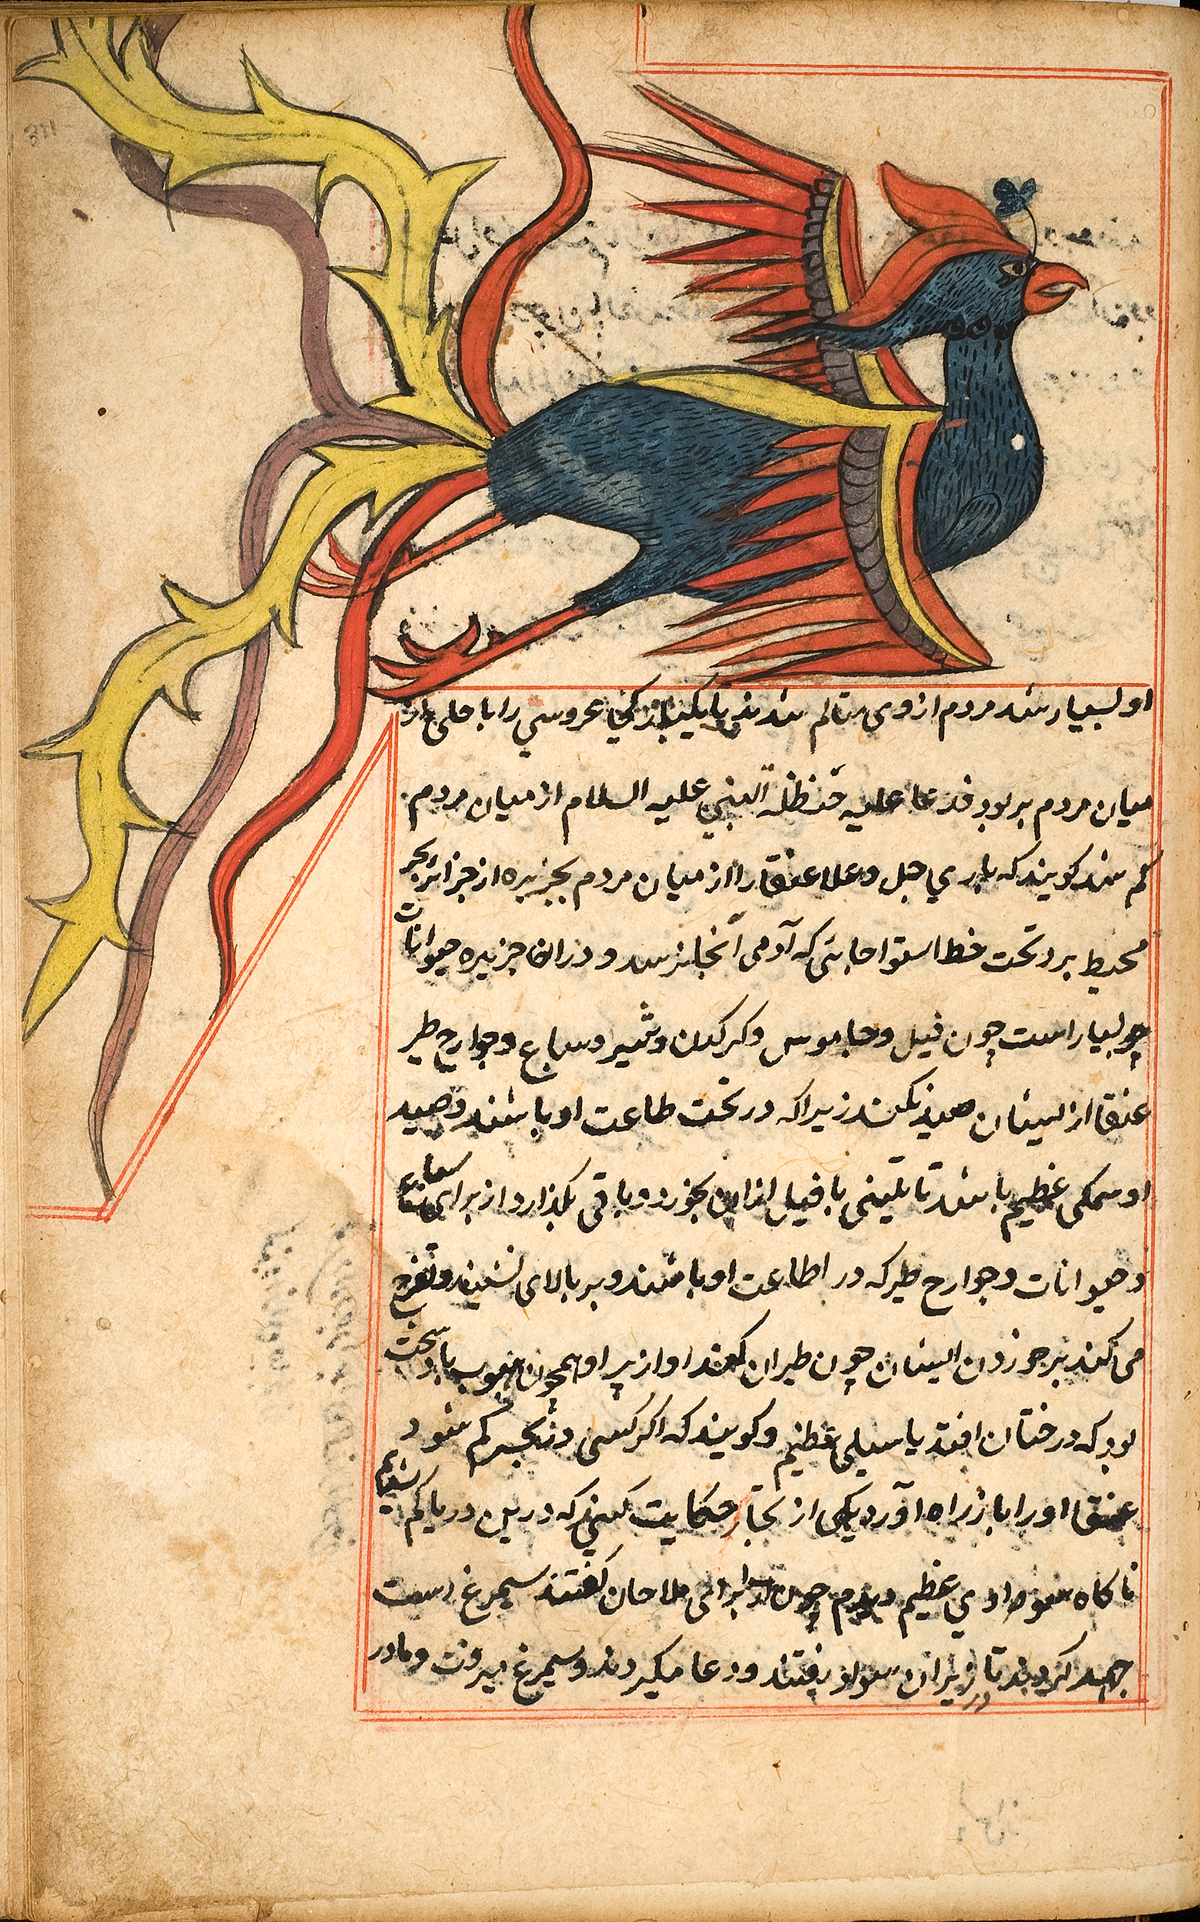 او بسیار شد مردم از وی متالم شدند تا یکبار کی عروسی را با حلی از
میان مردم بربود فدعا علیه حنظلة النبی علیه السلام از میان مردم
کم شد کویند که باری جل و علا عنقا را از میان مردم بجزیره از جزائر بحر
محیط برد تحت خط استوا جایی که آدمی آنجا نرسد و در ان جزیره حیوانات
بسیار است چون فیل و جاموس و کرکدن و شیر و سباع و جوارح طیر
عنقا از ایشان صید نکند زیرا که در تحت طاعت او باشند و صید
او سمکی عظیم باشد تا تلینی یا فیل از این بخورد و باقی بکذارد از برای سباع
و حیوانات و جوارح طیر که در اطاعت او باشند و بر بالای نشیند و تفرج
می کند بر خوردن ایشان چون طیران کند اواز پر او همچون هبوب باد سخت
بود که درختان افتد یا سیلی عظیم و کویند که اکر کسی در بحر کم شود
عنقا او را باز راه آورد یکی از تجار حکایت کند که در بین دریا کم شدیم
ناکاه سوادی عظیم دیدم چون ابر ملاحان کفتند سیمرغ است
جهد کردند تا در زیر ان سواد رفتند و دعا میکردند و سیمرغ میرفت و ما در